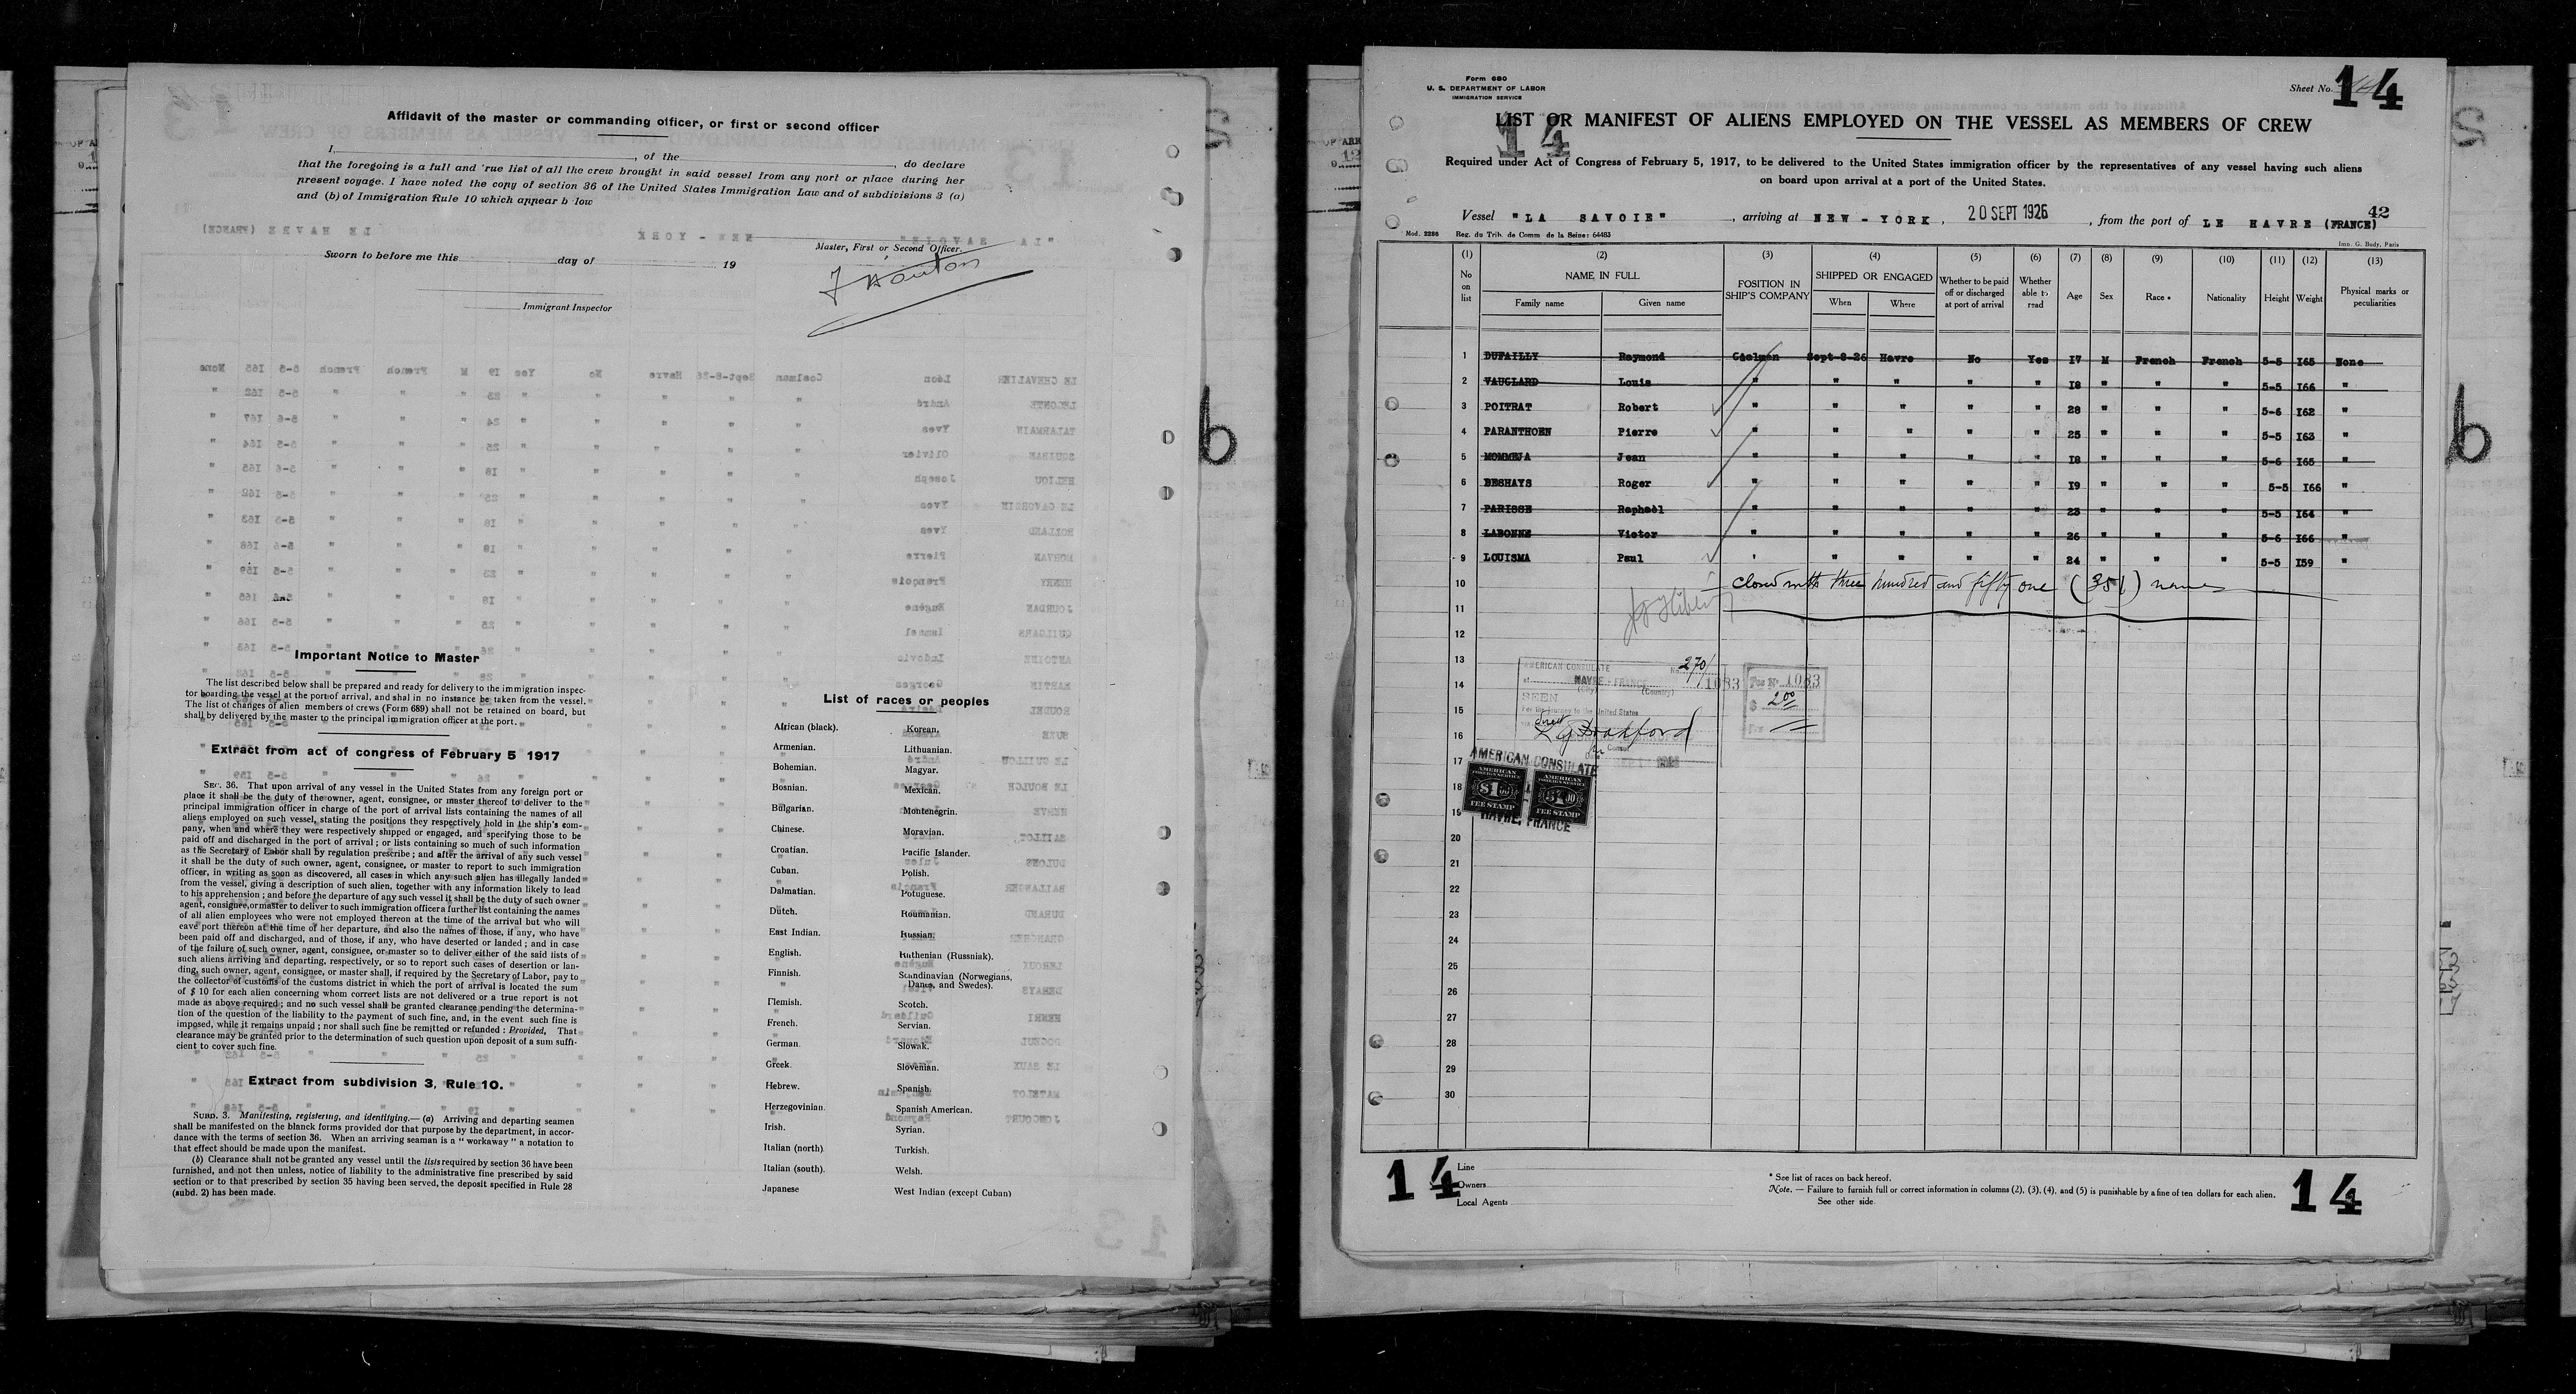 Affidavit of the master or commanding officer, or first or second officer
I, , of the , do declare
that the foregoing is a full and 'rue list of all the crew brought in said vessel from any port or place during her
present voyage. I have noted the copy of section 36 of the United States Immigration Law and of subdivisions 3 (a)
and (b) of Immigration Rule 10 which appear b low
Master, First or Second Officer.
Sworn to before me this day of 19
Immigrant Inspector
Important Notice to Master
The list described below shall be prepared and ready for delivery to the immigration inspec-
tor boarding the vessel at the port of arrival, and shal in no instance be taken from the vessel.
The list of changes of alien members of crews (Form 689) shall not be retained on board, but
shall by delivered by the master to the principal immigration officer at the port.
Extract from act of congress of February 5 1917
SEC. 36. That upon arrival of any vessel in the United States from any foreign port or
place it shall be the duty of the owner, agent, consignee, or master thereof to deliver to the
principal immigration officer in charge of the port of arrival lists containing the names of all
aliens employed on such vessel, stating the positions they respectively hold in the ship's com-
pany, when and where they were respectively shipped or engaged, and specifying those to be
paid off and discharged in the port of arrival ; or lists containing so much of such information
as the Secretary of Labor shall by regulation prescribe ; and after the arrival of any such vessel
it shall be the duty of such owner, agent, consignee, or master to report to such immigration
officer, in writing as soon as discovered, all cases in which any such alien has illegally landed
from the vessel, giving a description of such alien, together with any information likely to lead
to his apprehension ; and before the departure of any such vessel it shall be the duty of such owner
agent, consignee, or master to deliver to such immigration officer a further list containing the names
of all alien employees who were not employed thereon at the time of the arrival but who will
eave port thereon at the time of her departure, and also the names of those, if any, who have
been paid off and discharged, and of those, if any, who have deserted or landed ; and in case
of the failure of such owner, agent, consignee, or master so to deliver either of the said lists of
such aliens arriving and departing, respectively, or so to report such cases of desertion or lan-
ding, such owner, agent, consignee, or master shall, if required by the Secretary of Labor, pay to
the collector of customs of the customs district in which the port of arrival is located the sum
of $ 10 for each alien concerning whom correct lists are not delivered or a true report is not
made as above required ; and no such vessel shall be granted clearance pending the determina-
tion of the question of the liability to the payment of such fine, and, in the event such fine is
imposed, while it remains unpaid ; nor shall such fine be remitted or refunded : Provided, That
clearance may be granted prior to the determination of such question upon deposit of a sum suffi-
cient to cover such fine.
Extract from subdivision 3, Rule 10.
SUBD. 3. Manifesting, registering, and identifying.— (a) Arriving and departing seamen
shall be manifested on the blanck forms provided dor that purpose by the department, in accor-
dance with the terms of section 36. When an arriving seaman is a " workaway " a notation to
that effect should be made upon the manifest.
(b) Clearance shall not be granted any vessel until the lists required by section 36 have been
furnished, and not then unless, notice of liability to the administrative fine prescribed by said
section or to that prescribed by section 35 having been served, the deposit specified in Rule 28
(subd. 2) has been made.
List of races or peoples
African (black).
Armenian.
Bohemian.
Bosnian.
Bulgarian.
Chinese.
Croatian.
Cuban.
Dalmatian.
Dutch.
East Indian.
English.
Finnish.
Flemish.
French.
German.
Greek.
Hebrew.
Herzegovinian.
Irish.
Italian (north)
Italian (south).
Japanese
Korean.
Lithuanian.
Magyar.
Mexican.
Montenegrin.
Moravian.
Pacific Islander.
Polish.
Potuguese.
Roumanian.
Russian.
Ruthenian (Russniak).
Scandinavian (Norwegians,
Danes, and Swedes).
Scotch.
Servian.
Slowak.
Slovenian.
Spanish.
Spanish American.
Syrian.
Turkish.
Welsh.
West Indian (except Cuban)
b
Form 680
U. S. DEPARTMENT OF LABOR
IMMIGRATION SERVICE
Sheet No. 14
LIST OR MANIFEST OF ALIENS EMPLOYED ON THE VESSEL AS MEMBERS OF CREW
14
Required under Act of Congress of February 5, 1917, to be delivered to the United States immigration officer by the representatives of any vessel having such aliens
on board upon arrival at a port of the United States.
42
Vessel "LA SAVOIE", arriving at NEW-YORK, 20 SEPT 1926, from the port of LE HAVRE (FRANCE)
Mod. 2286 Reg. du Trib. de Comm de la Seine: 64483 Imp. G. Body, Paris
(1) (2) (3) (4) (5) (6) (7) (8) (9) (10) (11) (12) (13)
No on list NAME IN FULL Family name Given name POSITION IN SHIP'S COMPANY SHIPPED OR ENGAGED When Where Whether to be paid off or discharged at port of arrival Whether able to read Age Sex Race * Nationality Height Weight Physical marks or peculiarities
1 DUFAILLY Raymond Coalman Sept-8-26 Havre No Yes 17 M French French 5-5 165 None
2 VAUGLARD Louis " " " " " 18 " " " 5-5 166 "
3 POITRAT Robert " " " " " 28 " " " 5-6 162 "
4 PARANTHOEN Pierre " " " " " 25 " " " 5-5 163 "
5 MOMMEJA Jean " " " " " 18 " " " 5-6 165 "
6 DESHAYS Roger " " " " " 19 " " " 5-5 166 "
7 PARISSE Raphaël " " " " " 23 " " " 5-5 164 "
8 LABONNE Victor " " " " " 26 " " " 5-6 166 "
9 LOUISMA Paul ' " " " " 24 " " " 5-5 159 "
10 closed with three hundred and fifty one (351) names
11
12
13
14
15
16
17
18
19
20
21
22
23
24
25
26
27
28
29
30
AMERICAN CONSULATE No. 270/
at HAVRE, FRANCE 1083
(City) (Country)
SEEN
For the journey to the United States
Direct
Fee No 1083
$ 2.00
AMERICAN CONSULATE
AMERICAN FOREIGN SERVICE $1.00 FEE STAMP
AMERICAN FOREIGN SERVICE $1.00 FEE STAMP
HAVRE, FRANCE
14 14
Line
Owners
Local Agents
* See list of races on back hereof.
Note. — Failure to furnish full or correct information in columns (2), (3), (4), and (5) is punishable by a fine of ten dollars for each alien.
See other side
b